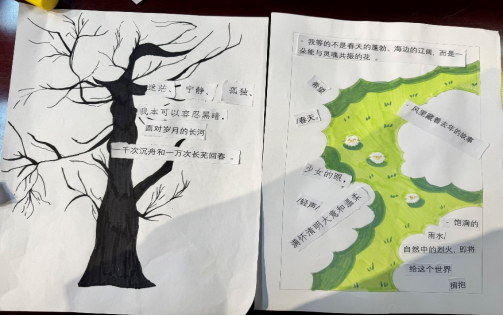 迷茫、宁静、孤独,
我本可以容忍黑暗,
面对岁月的长河
一千次沉舟和一万次长芜回春。
我等的不是春天的蓬勃、海边的辽阔,而是一
朵能与灵魂共振的花。
希望
春天,
风里藏着去年的故事
少女的眼,
轻声
满怀清明大意和温柔
饱满的
雨水
自然中的烈火,即将
给这个世界
拥抱